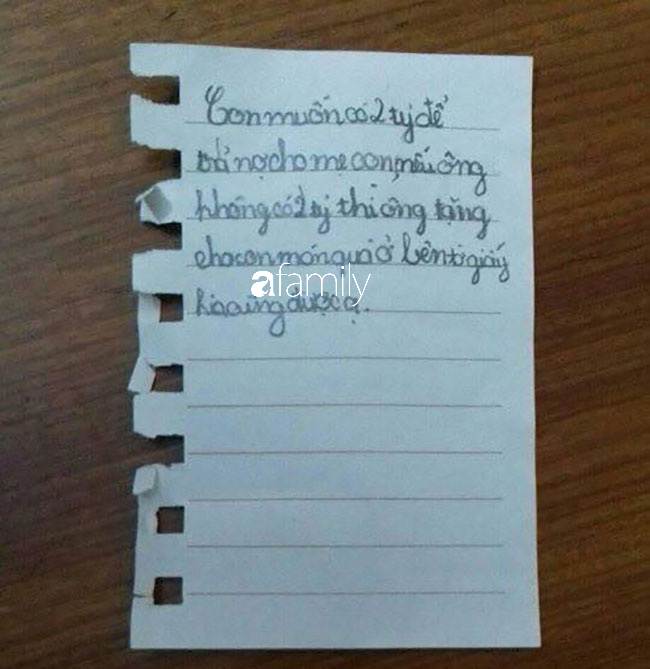 Con muốn có 2 tỷ để
trả nợ cho mẹ con, nếu ông
không có 2 tỷ thì ông tặng
cho con món quà ở bên tờ giấy
kia cũng được ạ.
afamily